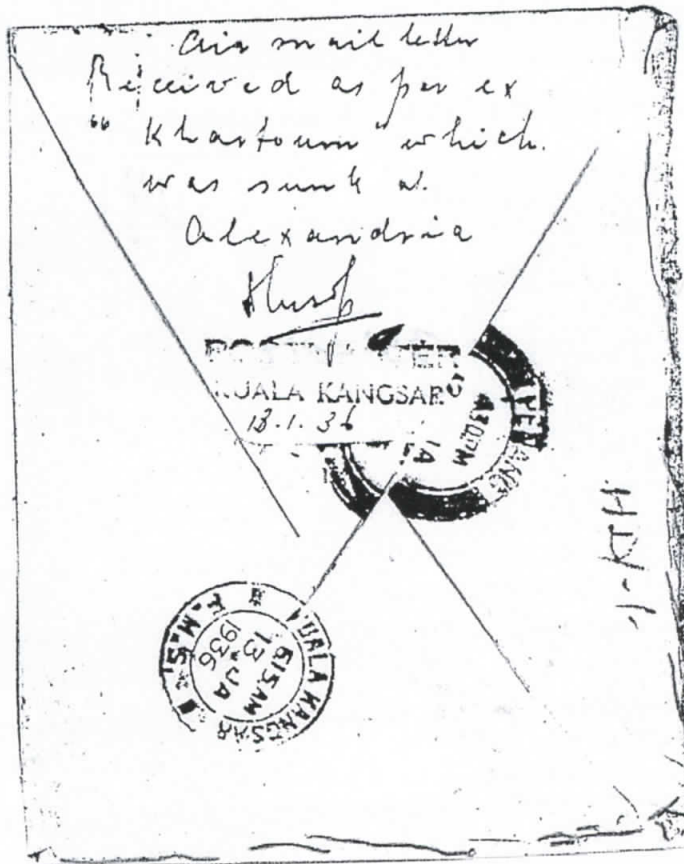 Air mail letter
Received as per ex
"Khartoum" which
was sunk at
Alexandria
KUALA KANGSAR
13.1.36
PENANG
430PM
JA
KUALA KANGSAR
615AM
13 JA
1936
F.M.S.